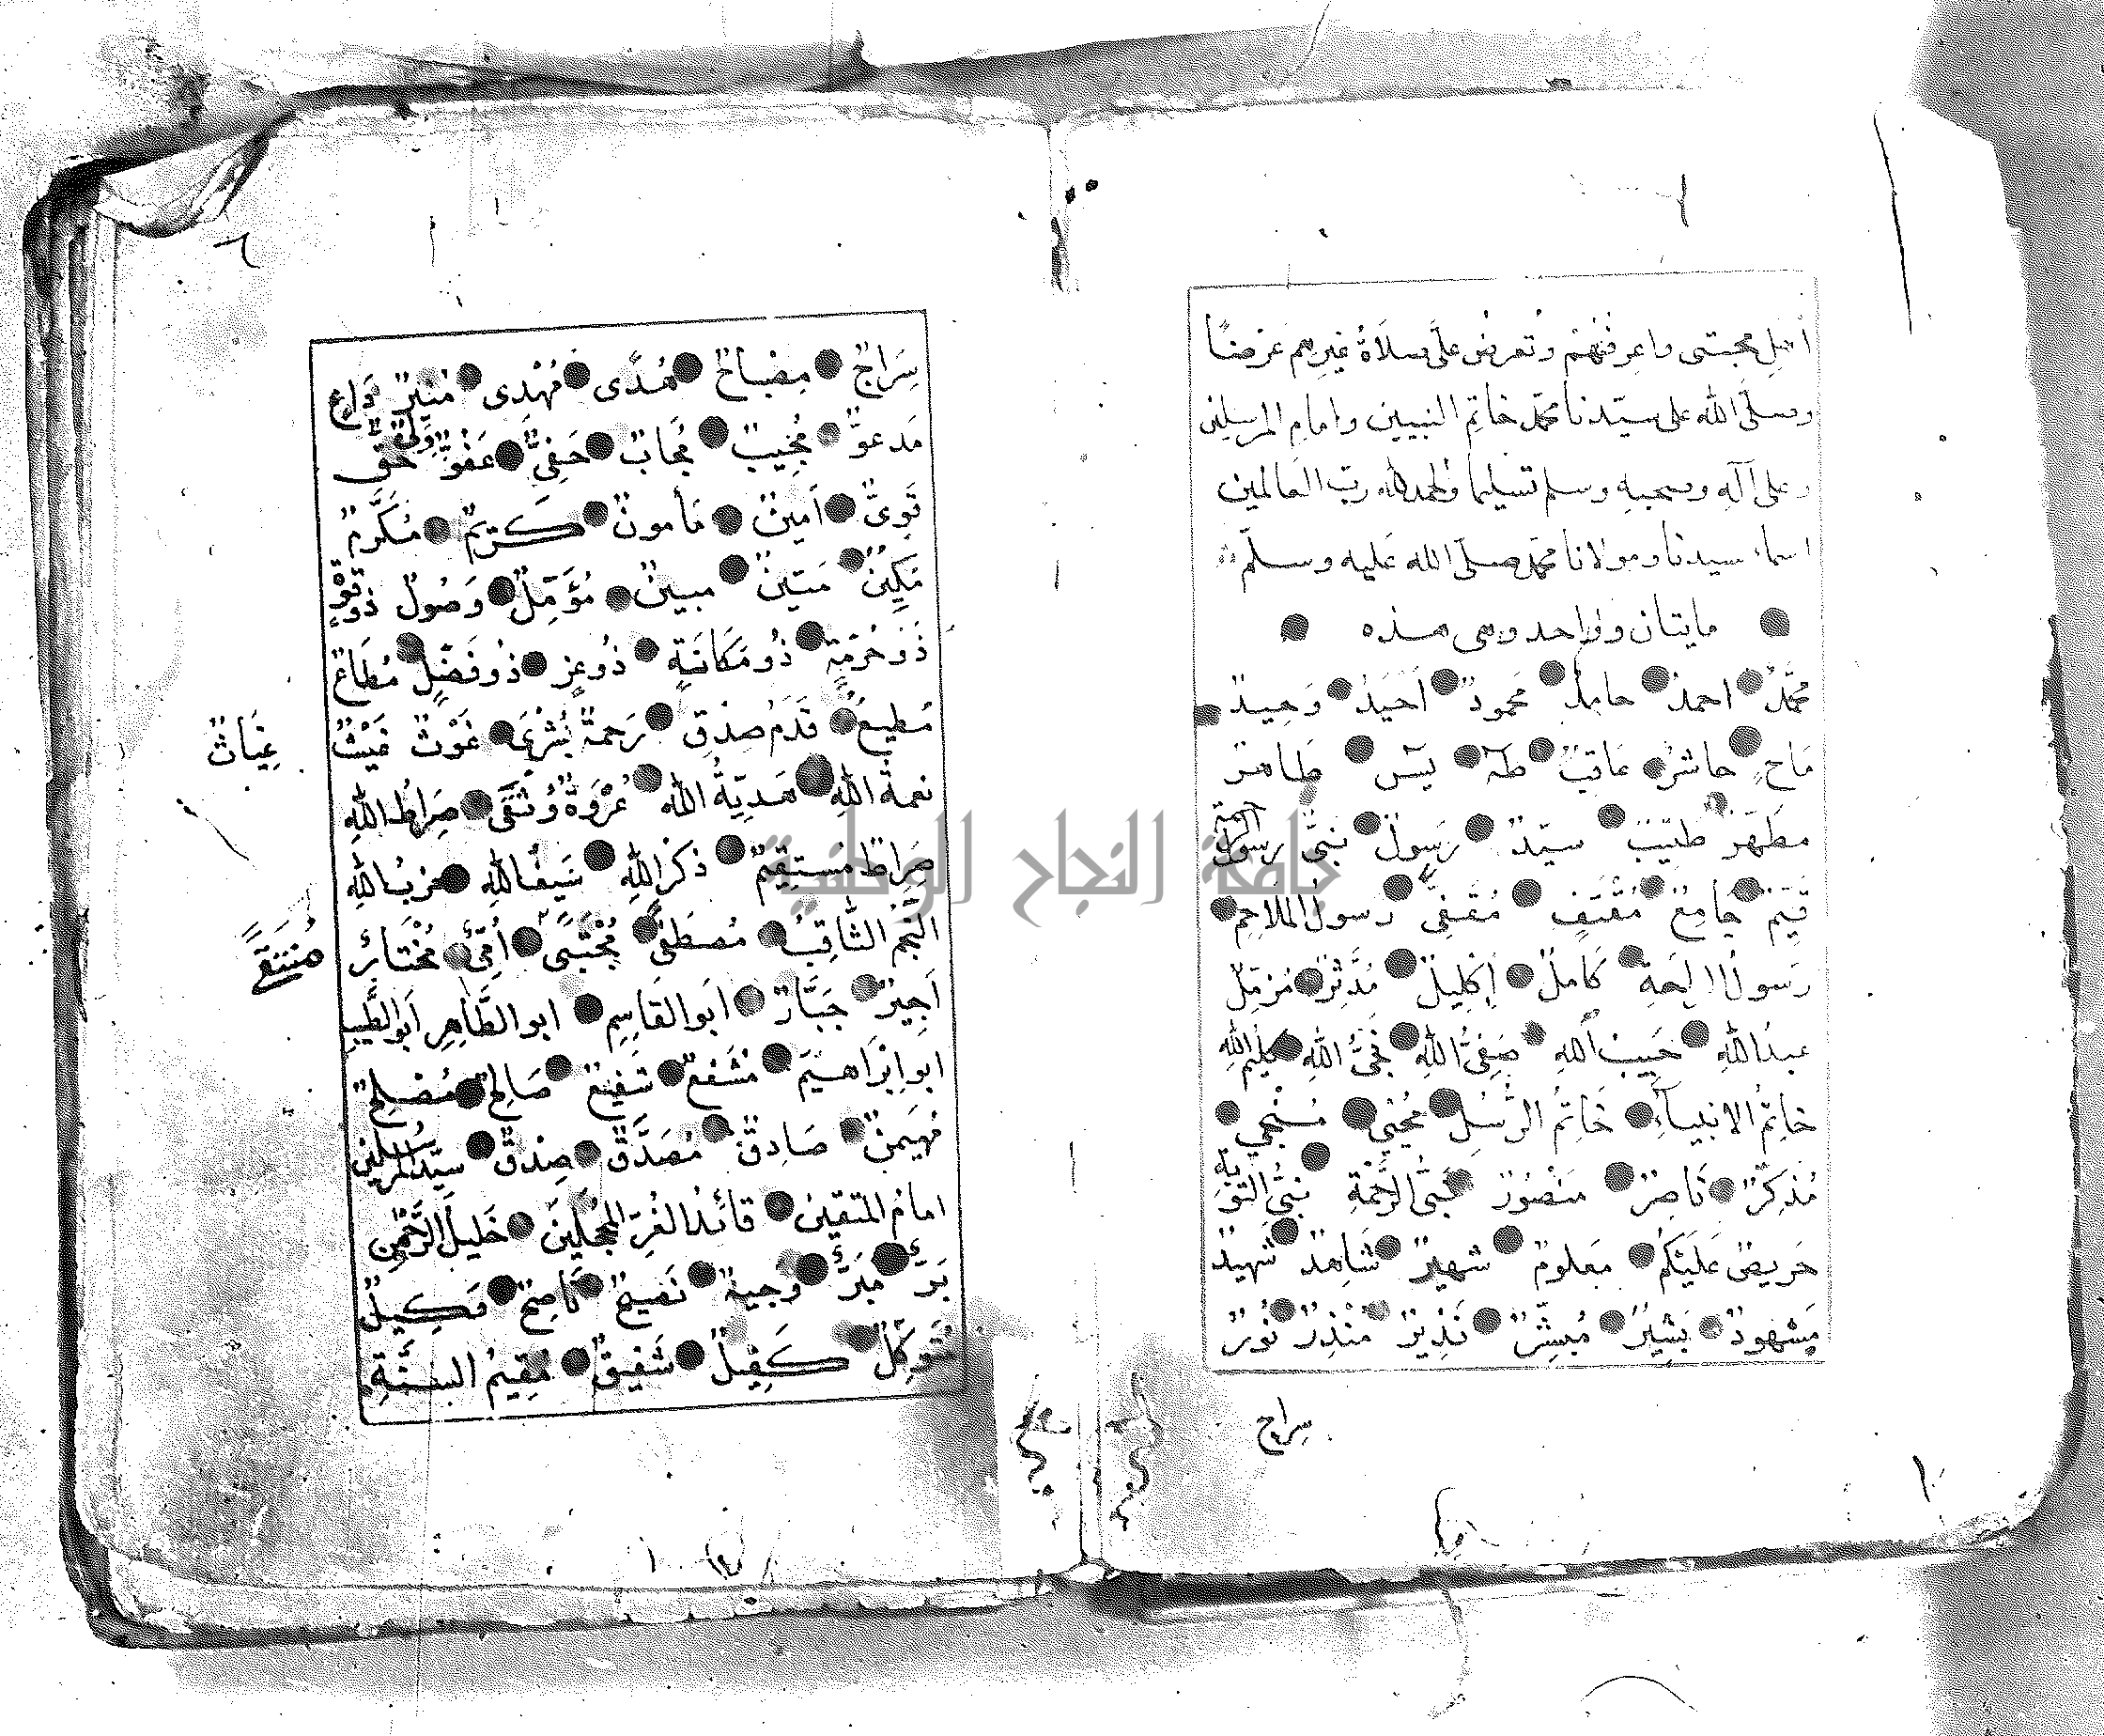 اهل محبتى واعرفهم وتعرض على صلاة غيرهم عرضا
وصلى الله على سيدنا محمد خاتم النبيين وامام المرسلين
وعلى آله وصحبه وسلم تسليما والحمد لله رب العالمين
اسماء سيدنا ومولانا محمد صلى الله عليه وسلم
مايتان وواحد وهى هذه
مُحَمَّدٌ احمدٌ حامدٌ مَحمودٌ اَحيَدٌ وَحِيدٌ
مَاحٍ حاشرٌ عَاقبٌ طٰهٰ يٰسٓ طَاهرٌ
مطَهَّرٌ طَيّبٌ سيّدٌ رَسولٌ نبىٌّ رسولُ الرحمة
قَيّمٌ جَامِعٌ مُقْتَفٍ مُقَفِّى رسولُ الملَاحِمِ
رَسولُ الرَاحَةِ كَاملٌ اِكلِيلٌ مُدَّثِرٌ مُزَمِّلٌ
عبدُ اللهِ حَبِيبُ اللهِ صَفِىُّ اللهِ نَجِىُّ اللهِ كليمُ اللهِ
خاتِمُ الانبيآءِ خَاتِمُ الرُّسُلِ مُحْيِى مُنْجِي
مُذكِّرٌ نَاصِرٌ مَنْصُورٌ نَبىُّ الرَّحْمَةِ نبىُّ التَّوْبَةِ
حَريصٌ عَلَيْكُم مَعلومٌ شهيرٌ شَاهدٌ شهيدٌ
مَشْهودٌ بَشيرٌ مُبشِّرٌ نَذيرٌ مُنْذِرٌ نُورٌ
سِراج
سِرَاجٌ مِصْبَاحٌ هُدًى مُهْدِى مُنيرٌ دَاعٍ
مَدعوٌّ مُجِيبٌ مُجَابٌ حَفِىٌّ عَفُوٌّ وَلِىٌّ حَقٌّ
قَوِىٌّ اَمِينٌ مَأمونٌ كَرِيمٌ مُكَرَّمٌ
مَكِينٌ مَتينٌ مبينٌ مُؤَمِّلٌ وَصُولٌ ذو قوة
ذو حُرْمَةٍ ذُو مَكَانَةٍ ذُو عِزٍ ذُو فَضْلٍ مُطَاعٌ
مُطيعٌ قَدَمُ صِدْقٍ رَحمةٌ بُشْرَى غَوْثٌ غَيْثٌ
غِيَاثٌ
نعمةُ اللهِ هَدِيَّةُ اللهِ عُرْوَةٌ وُثْقَى صِرَاطُ اللهِ
صِرَاطٌ مُسْتَقِيمٌ ذكرُ اللهِ سَيفُ اللهِ حزبُ اللهِ
النَّجمُ الثَّاقِبُ مُصطَفًى مُجْتَبًى اُمِّىٌّ مُخْتَارٌ
مُنتَقًى
اَجِيرٌ جَبَّارٌ ابَو القَاسِمِ ابو الطَّاهِرِ ابَو الطَّيِّبِ
ابو اِبْرَاهِيمَ مُشَفَّعٌ شَفِيعٌ صَالِحٌ مُصْلِحٌ
مُهَيمنٌ صَادِقٌ مُصَدَّقٌ صِدْقٌ سيِّدُ المُرسلين
امامُ المتقين قائدُ الغُرِّ المُحَجَّلِينَ خَليلُ الرَّحْمٰنِ
بَرٌّ مَبَرٌّ وَجيهٌ نَصيحٌ نَاصِحٌ وَكِيلٌ
مُتوَكِّلٌ كَفِيلٌ شَفِيقٌ مُقِيمُ السُّنَّةِ
جامعة النجاح الوطنية